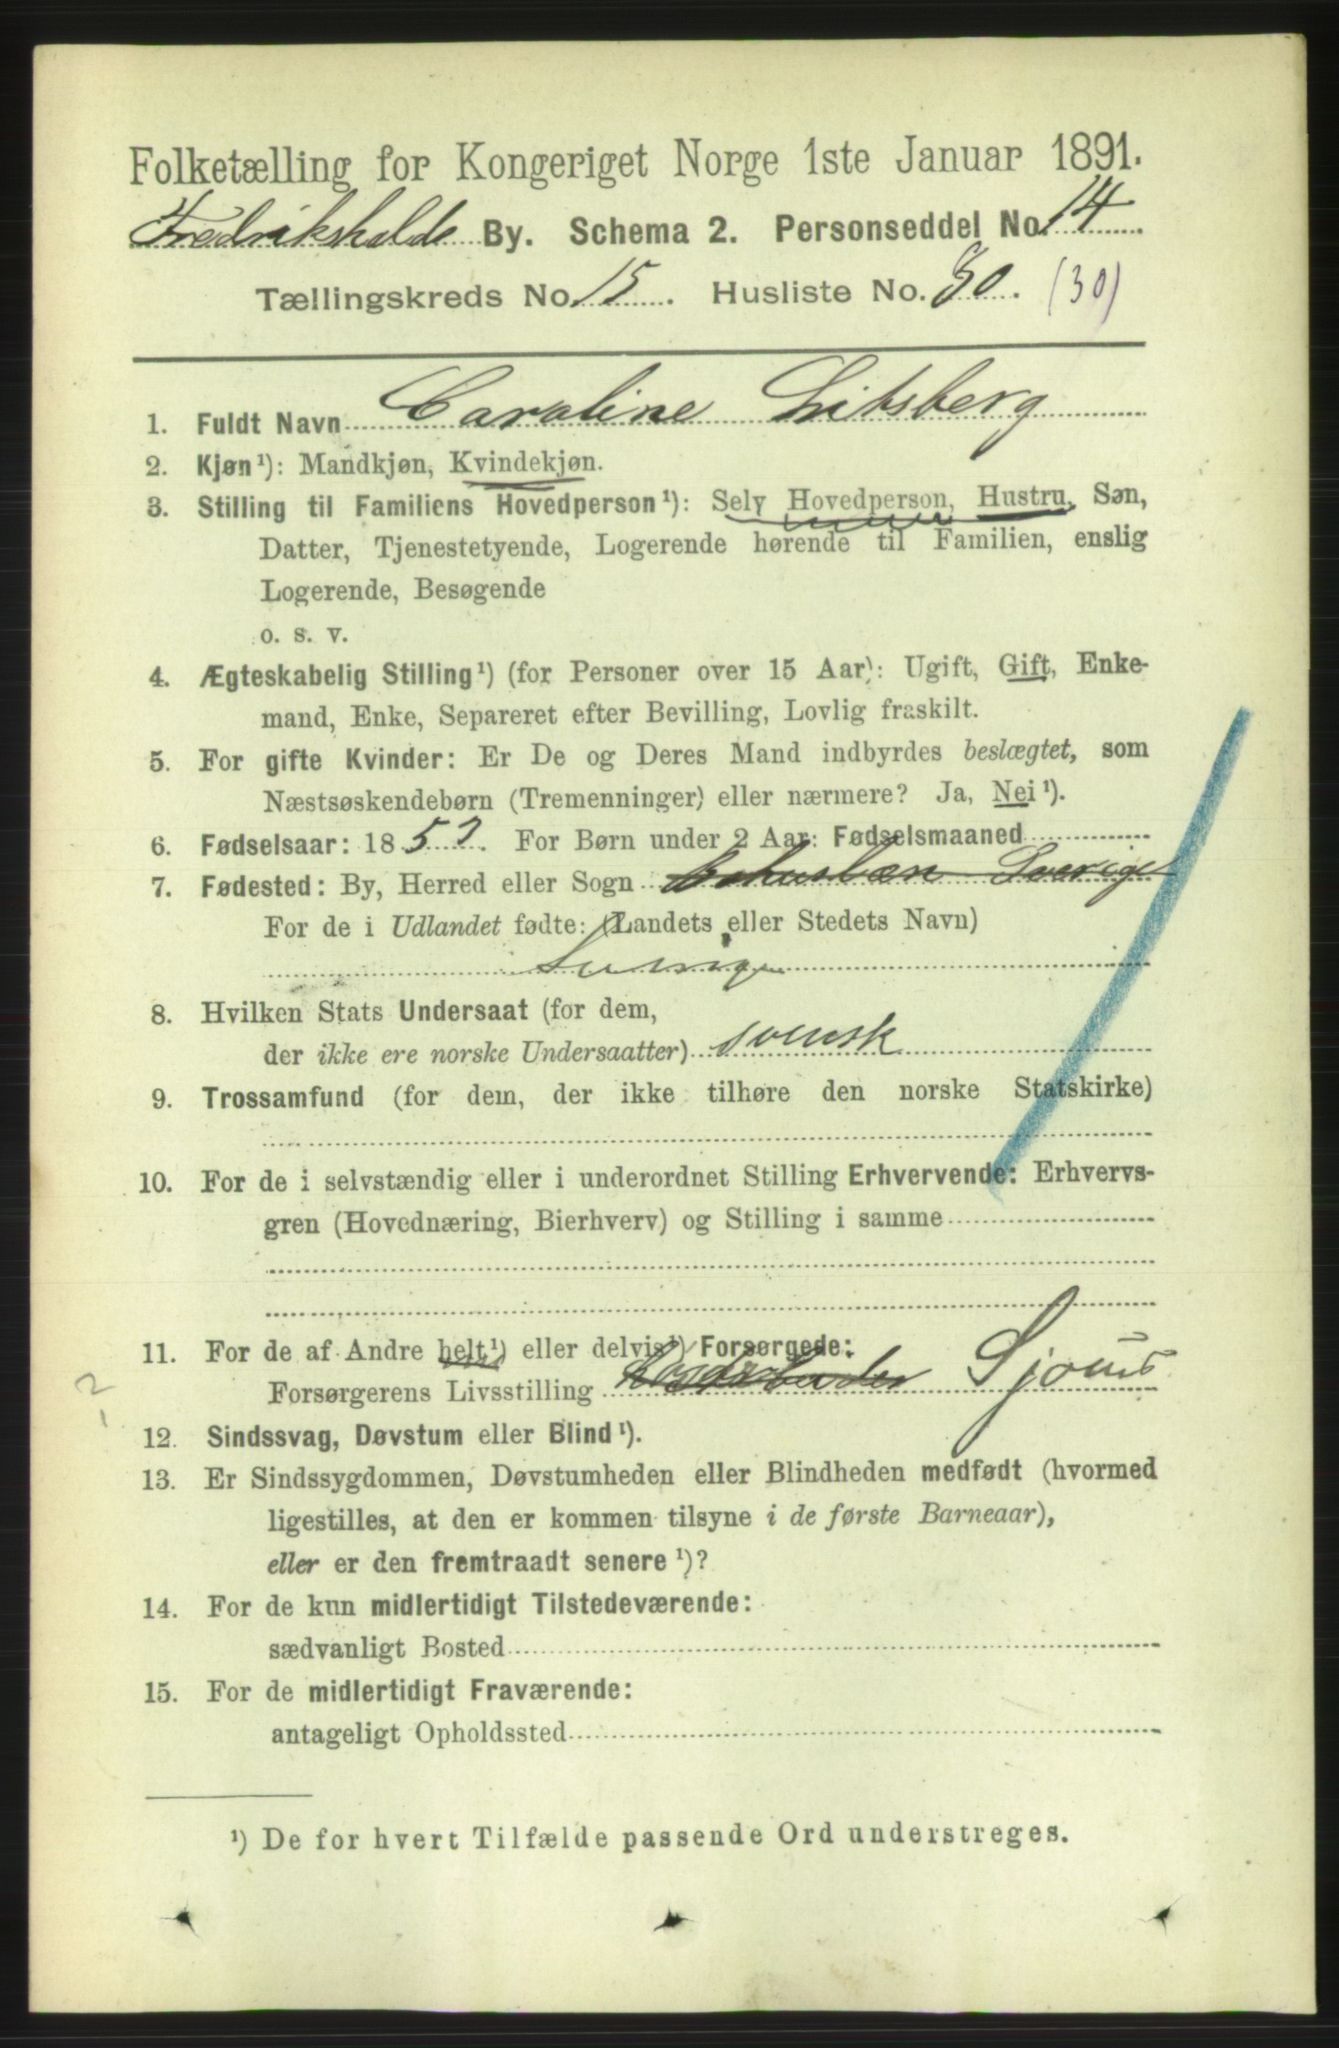 Folketælling for Kongeriget Norge 1ste Januar 1891.
Fredrikshalds By. Schema 2. Personseddel No. 14
Tællingskreds No. 15. Husliste No. 30. (30)
1. Fuldt Navn Caroline Litsberg
2. Kjøn ¹): Mandkjøn, Kvindekjøn.
3. Stilling til Familiens Hovedperson ¹): Selv Hovedperson, Hustru, Søn,
Datter, Tjenestetyende, Logerende hørende til Familien, enslig
Logerende, Besøgende
o. s. v.
4. Ægteskabelig Stilling ¹) (for Personer over 15 Aar): Ugift, Gift, Enke-
mand, Enke, Separeret efter Bevilling, Lovlig fraskilt.
5. For gifte Kvinder: Er De og Deres Mand indbyrdes beslægtet, som
Næstsøskendebørn (Tremenninger) eller nærmere? Ja, Nei ¹).
6. Fødselsaar: 1857. For Børn under 2 Aar: Fødselsmaaned
7. Fødested: By, Herred eller Sogn Bohuslæn Sverige
For de i Udlandet fødte: (Landets eller Stedets Navn)
Sverige
8. Hvilken Stats Undersaat (for dem,
der ikke ere norske Undersaatter) svensk
9. Trossamfund (for dem, der ikke tilhøre den norske Statskirke)
10. For de i selvstændig eller i underordnet Stilling Erhvervende: Erhvervs-
gren (Hovednæring, Bierhverv) og Stilling i samme
11. For de af Andre helt ¹) eller delvis ¹) Forsørgede:
Forsørgerens Livsstilling Sjoues
12. Sindssvag, Døvstum eller Blind ¹).
13. Er Sindssygdommen, Døvstumheden eller Blindheden medfødt (hvormed
ligestilles, at den er kommen tilsyne i de første Barneaar),
eller er den fremtraadt senere ¹)?
14. For de kun midlertidigt Tilstedeværende:
sædvanligt Bosted
15. For de midlertidigt Fraværende:
antageligt Opholdssted
¹) De for hvert Tilfælde passende Ord understreges.